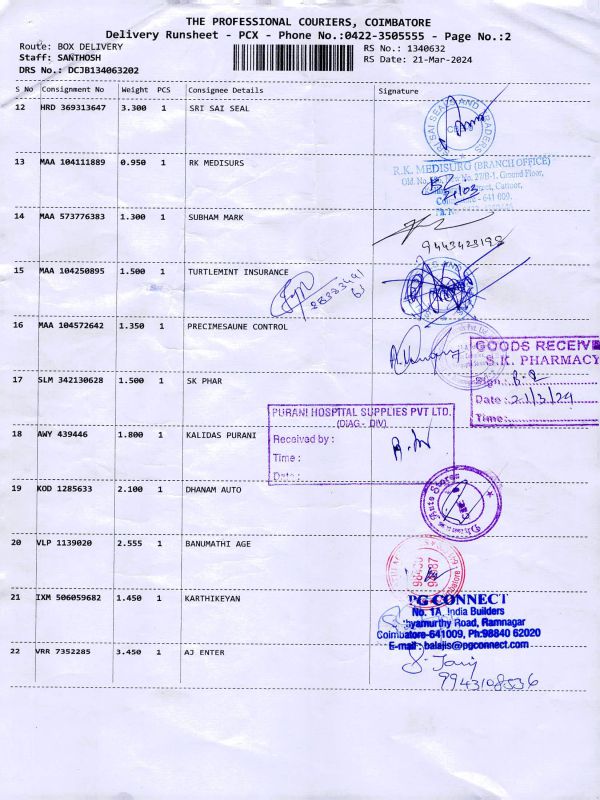 THE PROFESSIONAL COURIERS, COIMBATORE
Delivery Runsheet - PCX - Phone No.:0422-3505555 - Page No.:2
Route: BOX DELIVERY
RS No.: 1340632
Staff: SANTHOSH
RS Date: 21-Mar-2024
DRS No.: DCJB134063202
S No Consignment No Weight PCS Consignee Details Signature
12 HRD 369313647 3.300 1 SRI SAI SEAL
SRI SAI SEALS AND TRADERS
13 MAA 104111889 0.950 1 RK MEDISURS
R.K. MEDISURG (BRANCH OFFICE)
Old. No. No. 27/B-1, Ground Floor,
Cuttoor,
- 641 009.
21/03
14 MAA 573776383 1.300 1 SUBHAM MARK
9443423198
15 MAA 104250895 1.500 1 TURTLEMINT INSURANCE
16 MAA 104572642 1.350 1 PRECIMESAUNE CONTROL
GOODS RECEIVE
S.K. PHARMACY
Sign.
Date: 21/3/24
Time:
17 SLM 342130628 1.500 1 SK PHAR
PURANI HOSPITAL SUPPLIES PVT LTD.
(DIAG - DIV)
Received by :
Time :
Date :
18 AWY 439446 1.800 1 KALIDAS PURANI
19 KOD 1285633 2.100 1 DHANAM AUTO
Auto Stores
20 VLP 1139020 2.555 1 BANUMATHI AGE
21 IXM 506059682 1.450 1 KARTHIKEYAN
PG CONNECT
No. 1A, India Builders
thyamurthy Road, Ramnagar
Coimbatore-641009, Ph:98840 62020
E-mail : balajis@pgconnect.com
22 VRR 7352285 3.450 1 AJ ENTER
9943108536